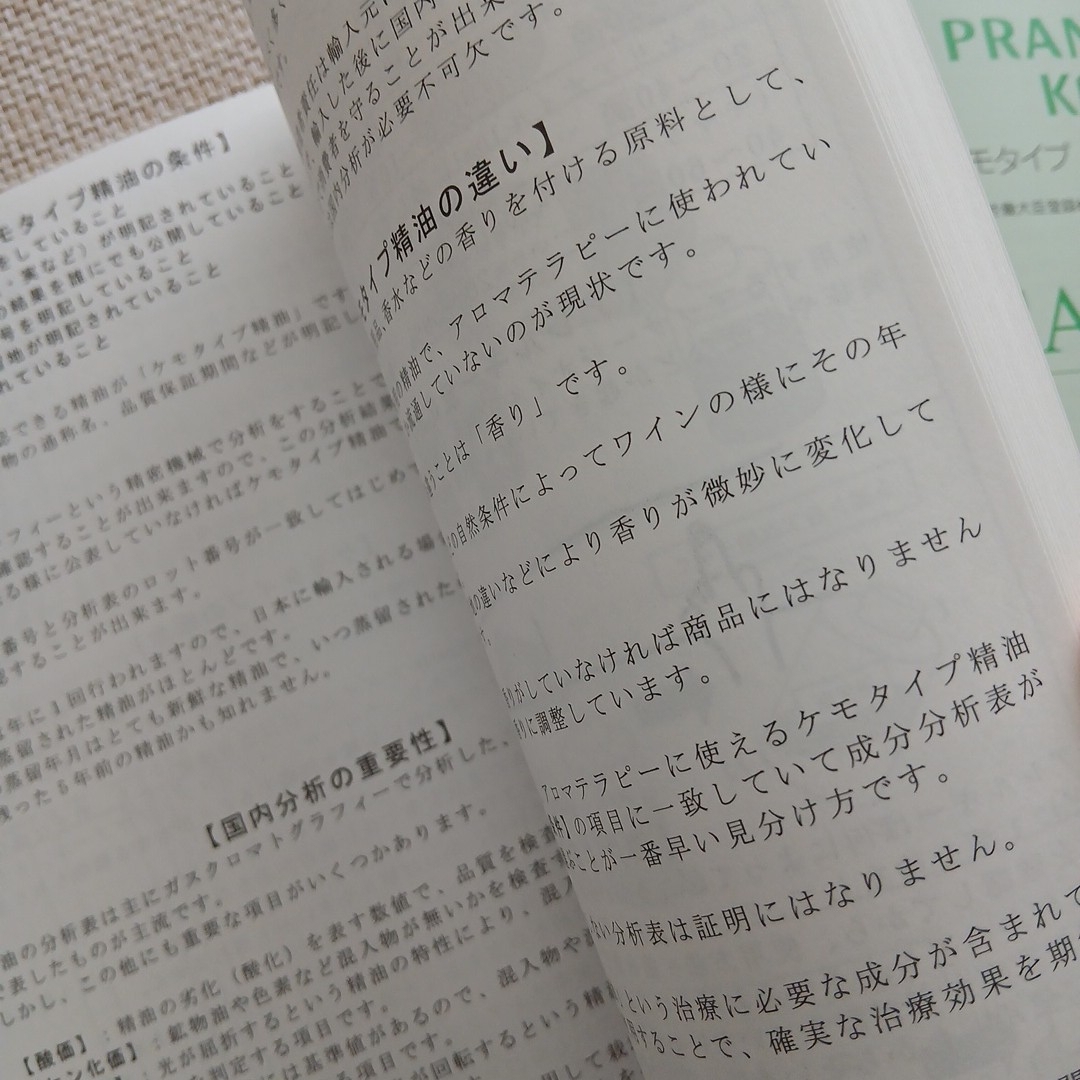 モタイプ精油の条件】
をしていること
・実など）が明記されていること
の結果を誰にでも公開していること
号を明記していること
地が明記されていること
れていること
できる精油が「ケモタイプ精油」です
物の通称名、品質保証期間などが明記し
フィーという精密機械で分析をすることで
確認することが出来ますので、この分析結果
る様に公表していなければケモタイプ精油で
番号と分析表のロット番号が一致してはじめて
認することが出来ます。
年に１回行われますので、日本に輸入される場
蒸留された精油がほとんどです。
蒸留年月はとても新鮮な精油で、いつ蒸留された
った５年前の精油かも知れません。
【国内分析の重要性】
油の分析表は主にガスクロマトグラフィーで分析した、
表したものが主流です。
しかし、この他にも重要な項目がいくつかあります。
【酸価】：精油の劣化（酸化）を表す数値で、品質を検査
ン化価】：鉱物油や色素など混入物が無いかを検査す
：光が屈折するという精油の特性により、混入
を判定する項目です。
には基準値があるので、混入物や
項目です。
が回転するという精
責任は輸入元
輸入した後に国内
費者を守ることが出来
国内分析が必要不可欠です。
タイプ精油の違い】
品、香水などの香りを付ける原料として、
の精油で、アロマテラピーに使われてい
流通していないのが現状です。
うことは「香り」です。
の自然条件によってワインの様にその年
の違いなどにより香りが微妙に変化して
す。
香りがしていなければ商品にはなりません
りに調整しています。
アロマテラピーに使えるケモタイプ精油
件】の項目に一致していて成分分析表が
ことが一番早い見分け方です。
ない分析表は証明にはなりません。
という治療に必要な成分が含まれて
することで、確実な治療効果を期
PRAN
K
モタイプ
働大臣登録
A